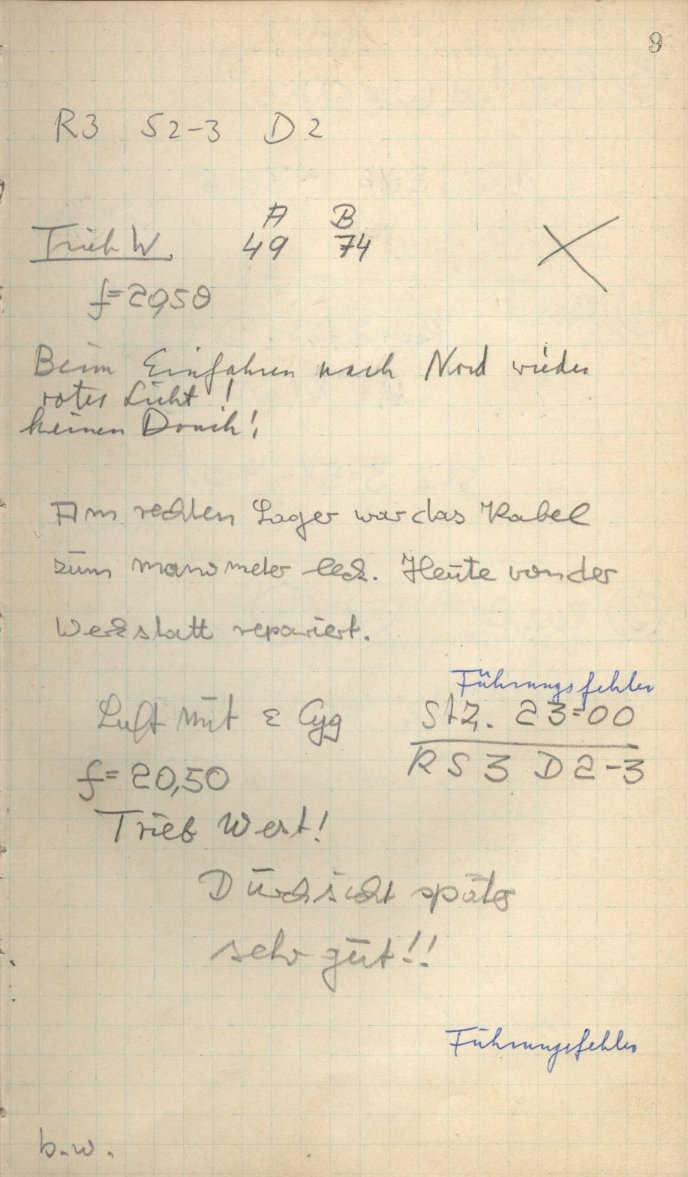 9
R3 S2-3 D2
A B
Trieb W. 49 74
f=20,50
Beim Einfahren nach Nord wieder
rotes Licht!
keinen Druck!
Am rechten Lager war das Kabel
zum Manometer leck. Heute von der
Werkstatt repariert.
Führungsfehler
Luft mit ε Cyg StZ. 23=00
f=20,50 RS3 D2-3
Trieb West!
Durchsicht später
sehr gut!!
Führungsfehler
b.w.